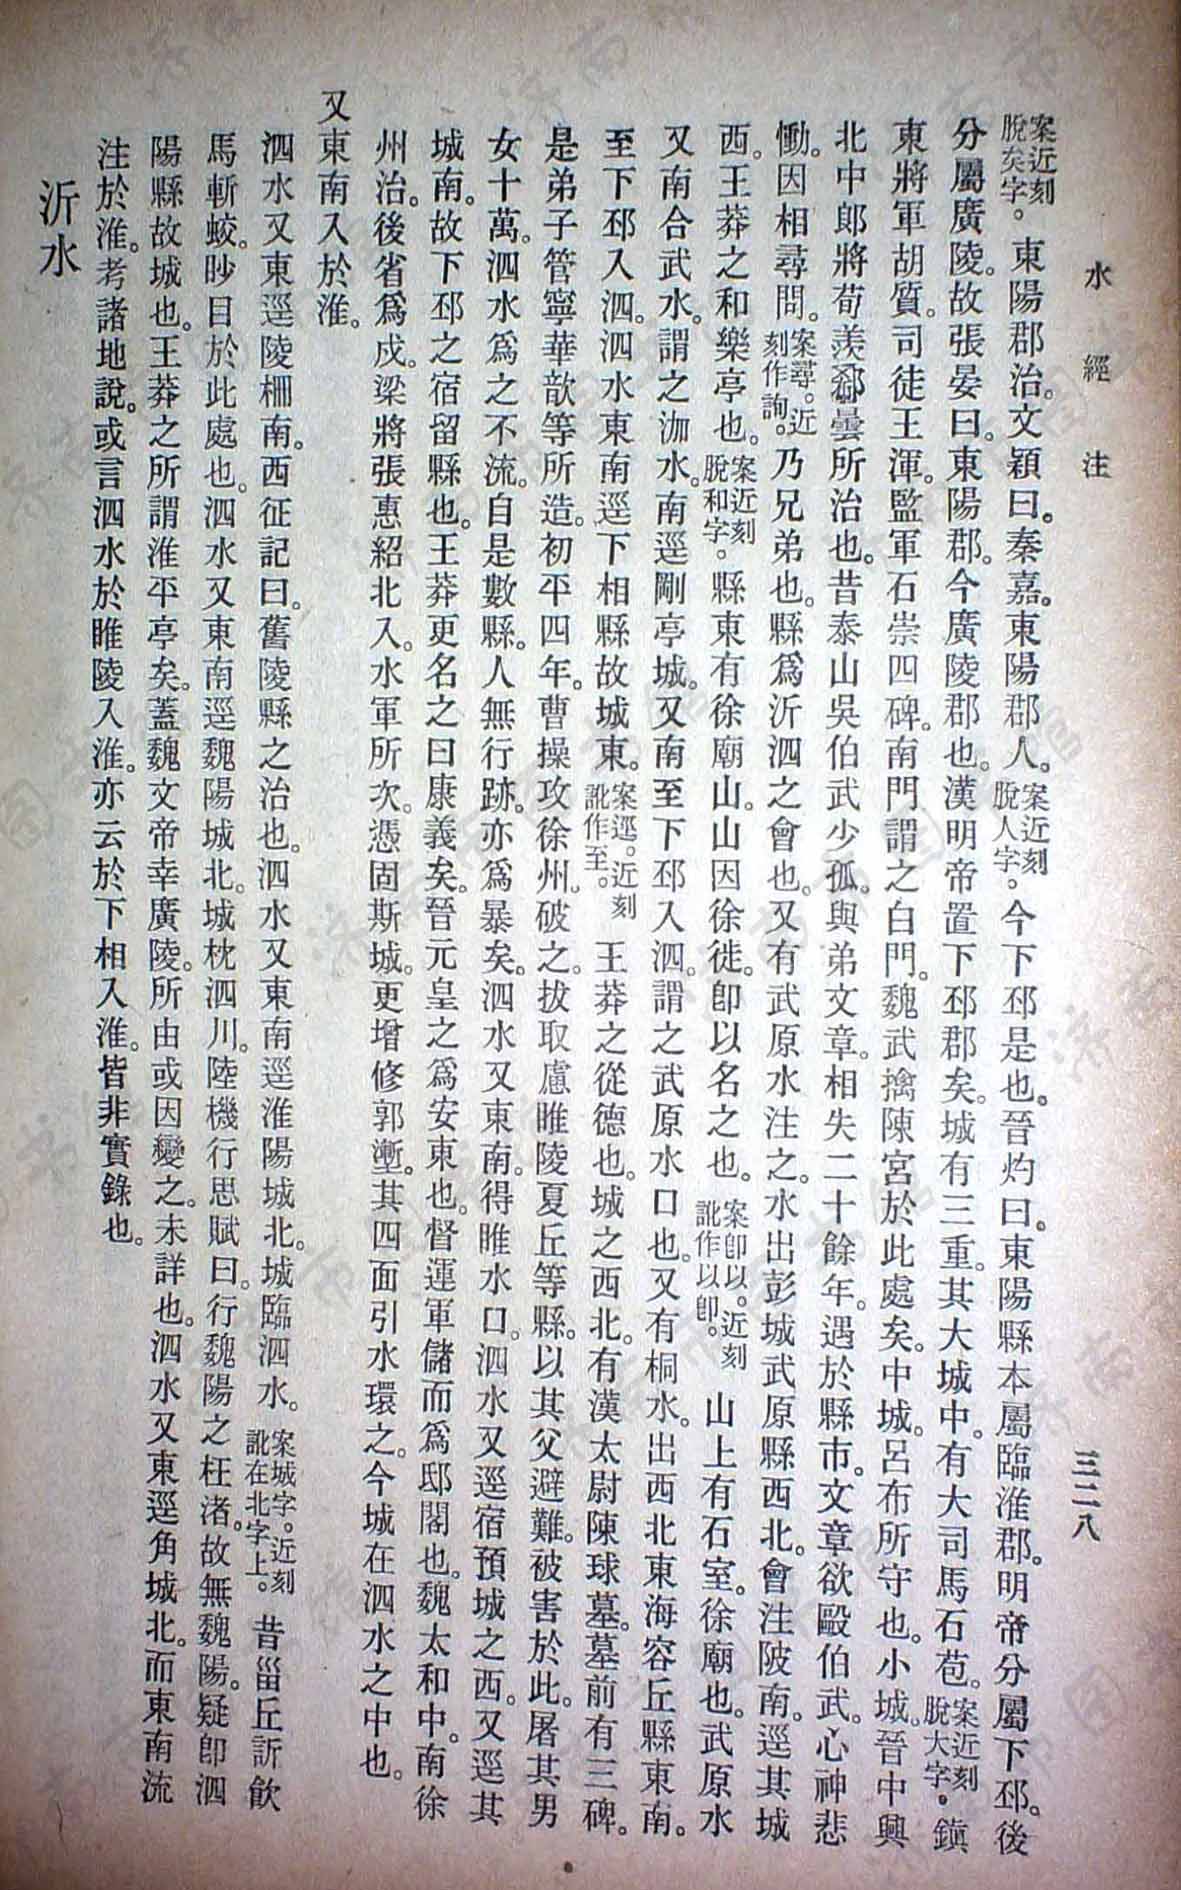 水經注
三二八
案近刻脫矣字。東陽郡治。文穎曰。秦嘉。東陽郡人。案近刻脫人字。今下邳是也。晉灼曰。東陽縣本屬臨淮郡。明帝分屬下邳。後
分屬廣陵。故張晏曰。東陽郡。今廣陵郡也。漢明帝置下邳郡矣。城有三重。其大城中。有大司馬石苞。案近刻脫大字。鎭
東將軍胡質。司徒王渾。監軍石崇四碑。南門謂之白門。魏武擒陳宮於此處矣。中城。呂布所守也。小城。晉中興
北中郞將荀羨郗曇所治也。昔泰山吳伯武少孤。與弟文章。相失二十餘年。遇於縣市。文章欲毆伯武。心神悲
慟。因相尋問。案尋。近刻作詢。乃兄弟也。縣爲沂泗之會也。又有武原水注之。水出彭城武原縣西北。會注陂南。逕其城
西。王莽之和樂亭也。案近刻脫和字。縣東有徐廟山。山因徐徙。卽以名之也。案卽以。近刻訛作以卽。山上有石室。徐廟也。武原水
又南合武水。謂之泇水。南逕剛亭城。又南至下邳入泗。謂之武原水口也。又有桐水。出西北東海容丘縣東南。
至下邳入泗。泗水東南逕下相縣故城東。案逕。近刻訛作至。王莽之從德也。城之西北。有漢太尉陳球墓。墓前有三碑。
是弟子管寧華歆等所造。初平四年。曹操攻徐州。破之。拔取慮睢陵夏丘等縣。以其父避難。被害於此。屠其男
女十萬。泗水爲之不流。自是數縣。人無行跡。亦爲暴矣。泗水又東南。得睢水口。泗水又逕宿預城之西。又逕其
城南。故下邳之宿留縣也。王莽更名之曰康義矣。晉元皇之爲安東也。督運軍儲而爲邸閣也。魏太和中。南徐
州治。後省爲戍。梁將張惠紹北入。水軍所次。憑固斯城。更增修郭塹。其四面引水環之。今城在泗水之中也。
又東南入於淮。
泗水又東逕陵柵南。西征記曰。舊陵縣之治也。泗水又東南逕淮陽城北。城臨泗水。案城字。近刻訛在北字上。昔菑丘訢飮
馬斬蛟。眇目於此處也。泗水又東南逕魏陽城北。城枕泗川。陸機行思賦曰。行魏陽之枉渚。故無魏陽。疑卽泗
陽縣故城也。王莽之所謂淮平亭矣。蓋魏文帝幸廣陵。所由或因變之。未詳也。泗水又東逕角城北。而東南流
注於淮。考諸地說。或言泗水於睢陵入淮。亦云於下相入淮。皆非實錄也。
沂水